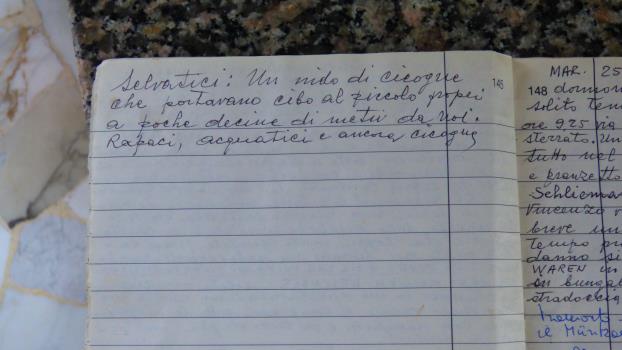 selvatici: Un nido di cicogne
che portavano cibo al piccolo propri
a poche decine di metri da noi.
Rapaci, acquatici e ancora cicogne
146
MAR. 25
148 dormo
solito tem
ore 9.25 via
sterrato. un
tutto nel
e pranzetto
Schliema
Vincenzo
breve un
tempo
danno si
WAREN in
in bungal
stradoccia
il Müritz